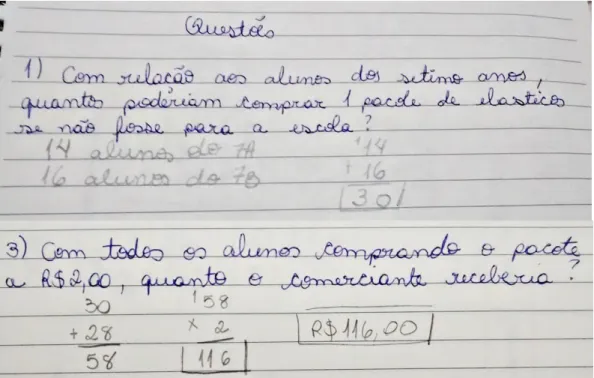 Questão
1) Com relação aos alunos dos setimo anos,
quantos poderiam comprar 1 pacole de elasticos
se não fosse para a escola?
14 alunos do 7A 14
16 alunos do 7B + 16
30
3) Com todos os alunos comprando o pacote
a R$2,00, quanto o comerciante receberia?
30 158
+ 28 x 2 R$ 116,00
58 116